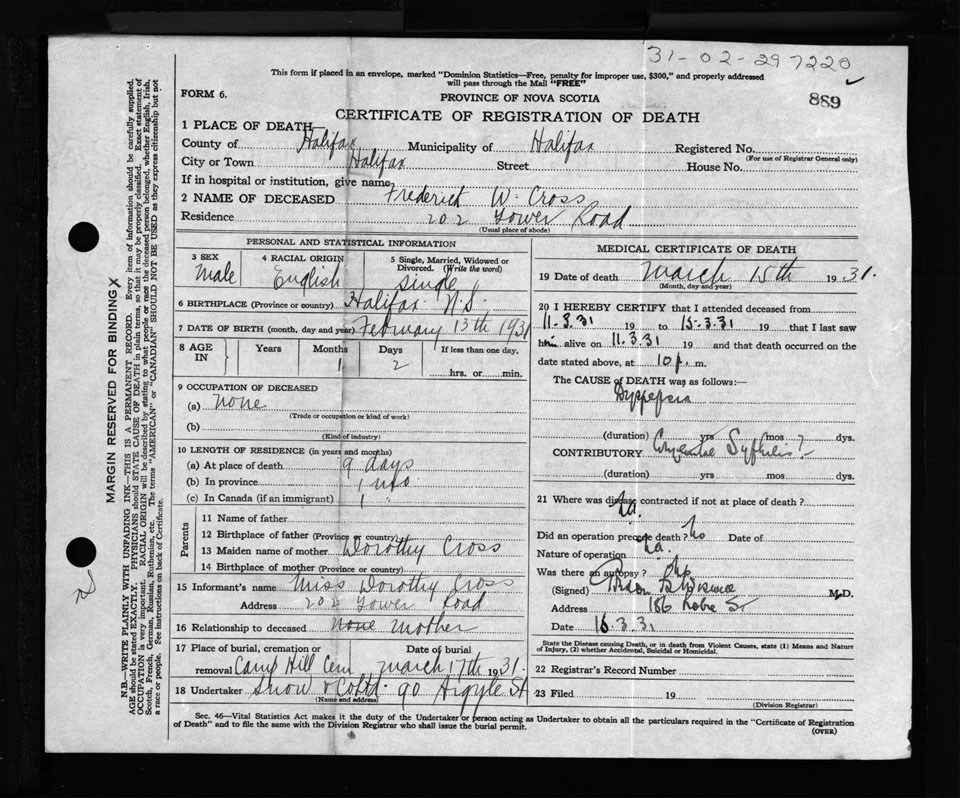 31-02-297220
This form if placed in an envelope, marked "Dominion Statistics—Free, penalty for improper use, $300," and properly addressed
will pass through the Mail "FREE"
FORM 6.
PROVINCE OF NOVA SCOTIA
889
CERTIFICATE OF REGISTRATION OF DEATH
1 PLACE OF DEATH
County of Halifax Municipality of Halifax Registered No.
(For use of Registrar General only)
City or Town Halifax Street House No.
If in hospital or institution, give name
2 NAME OF DECEASED Frederick W. Cross
Residence 202 Tower Road
(Usual place of abode)
PERSONAL AND STATISTICAL INFORMATION
3 SEX 4 RACIAL ORIGIN 5 Single, Married, Widowed or
Divorced. (Write the word)
Male English Single
6 BIRTHPLACE (Province or country) Halifax N.S.
7 DATE OF BIRTH (month, day and year) February 13th 1931
8 AGE IN Years Months Days If less than one day,
1 2 hrs. or min.
9 OCCUPATION OF DECEASED
(a) none
(Trade or occupation or kind of work)
(b)
(Kind of industry)
10 LENGTH OF RESIDENCE (in years and months)
(a) At place of death 9 days
(b) In province 1
(c) In Canada (if an immigrant) 1
Parents
11 Name of father
12 Birthplace of father (Province or country)
13 Maiden name of mother Dorothy Cross
14 Birthplace of mother (Province or country)
15 Informant's name Miss Dorothy Cross
Address 202 Tower Road
16 Relationship to deceased none mother
17 Place of burial, cremation or Date of burial
removal Camp Hill Cem March 17th 1931.
18 Undertaker Snow & Co Ltd. 90 Argyle St
(Name and address)
MEDICAL CERTIFICATE OF DEATH
19 Date of death March 15th 1931.
(Month, day and year)
20 I HEREBY CERTIFY that I attended deceased from
11.3.31 19 to 15.3.31 19 that I last saw
him alive on 11.3.31 19 and that death occurred on the
date stated above, at 10 p. m.
The CAUSE of DEATH was as follows:—
Dyspepsia
(duration) yrs mos dys.
CONTRIBUTORY Congenital Syphilis?
(duration) yrs mos dys.
21 Where was disease contracted if not at place of death?
Did an operation precede death? No Date of
Nature of operation
Was there an autopsy?
(Signed) M.D.
Address 186 St
Date 16.3.31
State the Disease causing Death, or in death from Violent Causes, state (1) Means and Nature
of Injury, (2) whether Accidental, Suicidal or Homicidal.
22 Registrar's Record Number
23 Filed 19
(Division Registrar)
Sec. 46—Vital Statistics Act makes it the duty of the Undertaker or person acting as Undertaker to obtain all the particulars required in the "Certificate of Registration
of Death" and to file the same with the Division Registrar who shall issue the burial permit.
(OVER)
MARGIN RESERVED FOR BINDING X
N.B.—WRITE PLAINLY WITH UNFADING INK—THIS IS A PERMANENT RECORD. Every item of information should be carefully supplied.
AGE should be stated EXACTLY. PHYSICIANS should STATE CAUSE OF DEATH in plain terms, so that it may be properly classified. Exact statement of
OCCUPATION is very important. RACIAL ORIGIN will be described by stating to what people or race the deceased person belonged, whether English, Irish,
Scotch, French, German, Russian, Ruthenian, etc. The terms "AMERICAN" or "CANADIAN" SHOULD NOT BE USED as they express citizenship but not
a race or people. See instructions on back of Certificate.